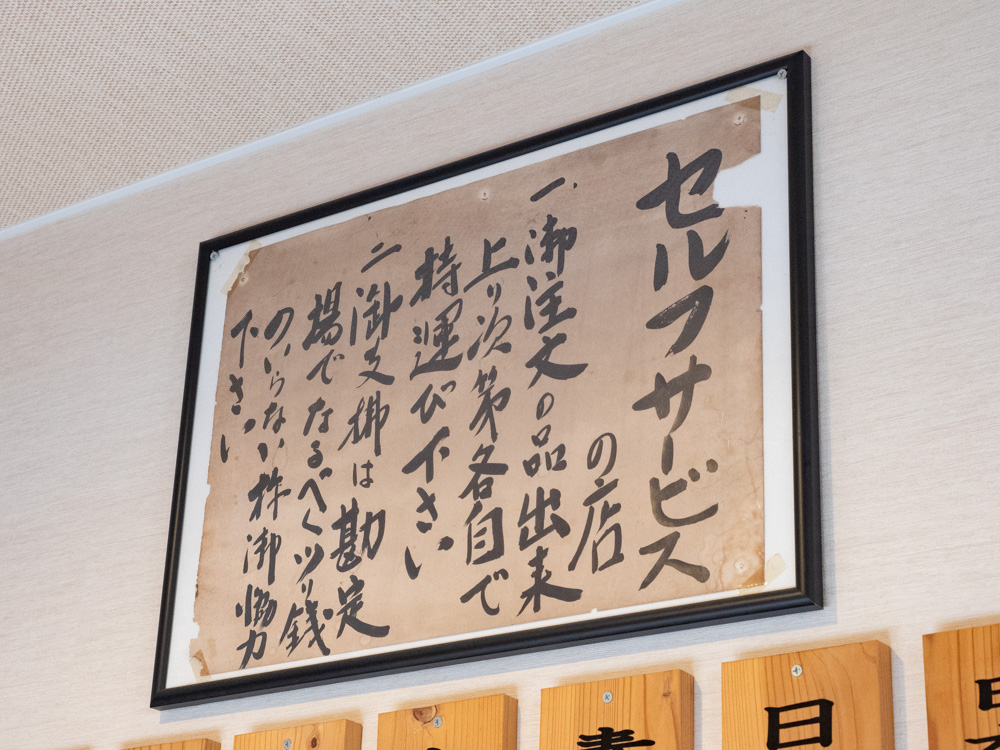 セルフサービス
の店
一、御注文の品出来
上り次第各自で
持運び下さい
二 御支払は勘定
場でなるべくツリ銭
のいらない様御協力
下さい
日